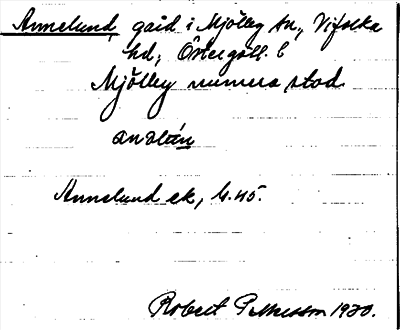 Annelund, gård i Mjölby sn, Vifolka
hd, Östergötl. l
Mjölby numera stad
Annelund ek, b. 45.
Robert Pettersson 1920.